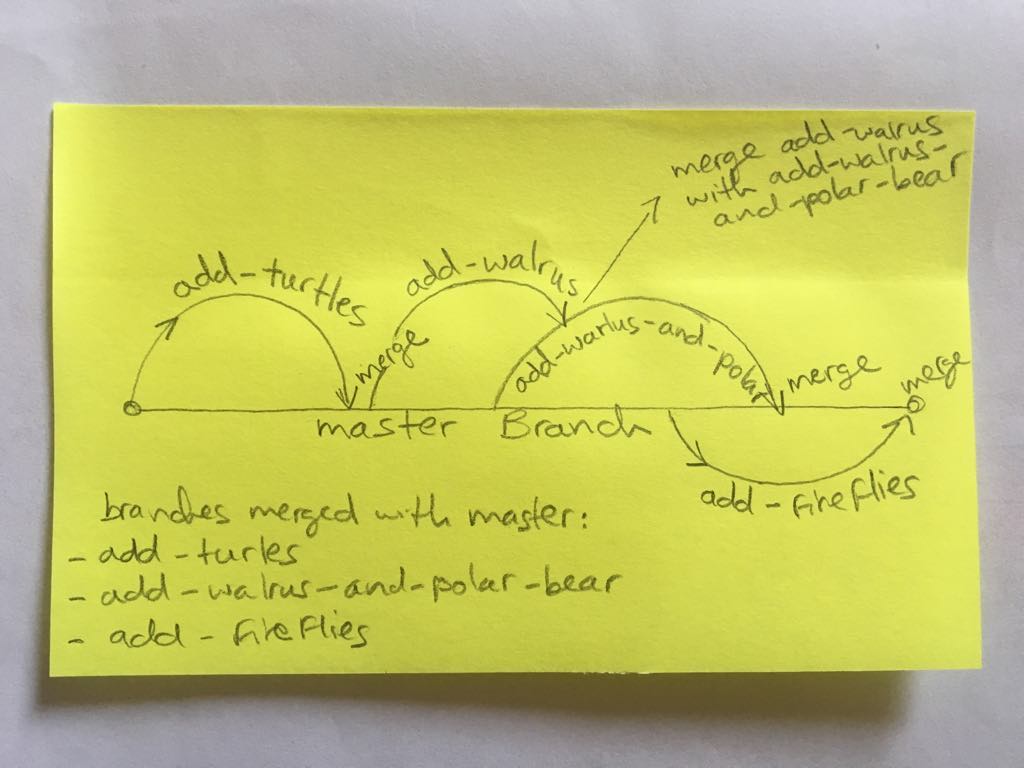 merge add-walrus
with add-walrus-
and-polar-bear
add-turtles
add-walrus
merge
add-warlus-and-polar
merge
merge
master Branch
add-fireflies
branches merged with master:
- add-turles
- add-walrus-and-polar-bear
- add-fireflies